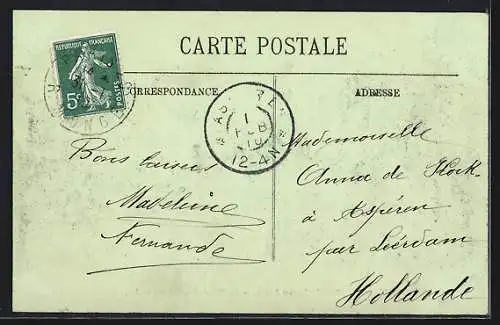 CARTE POSTALE
CORRESPONDANCE
ADRESSE
REPUBLIQUE FRANÇAISE
5c
POSTES
1
FEB
10
12-4N
Bons baisers
Madeleine
Fernande
Mademoiselle
Anna de Kock
à Aspéren
par Léerdam
Hollande